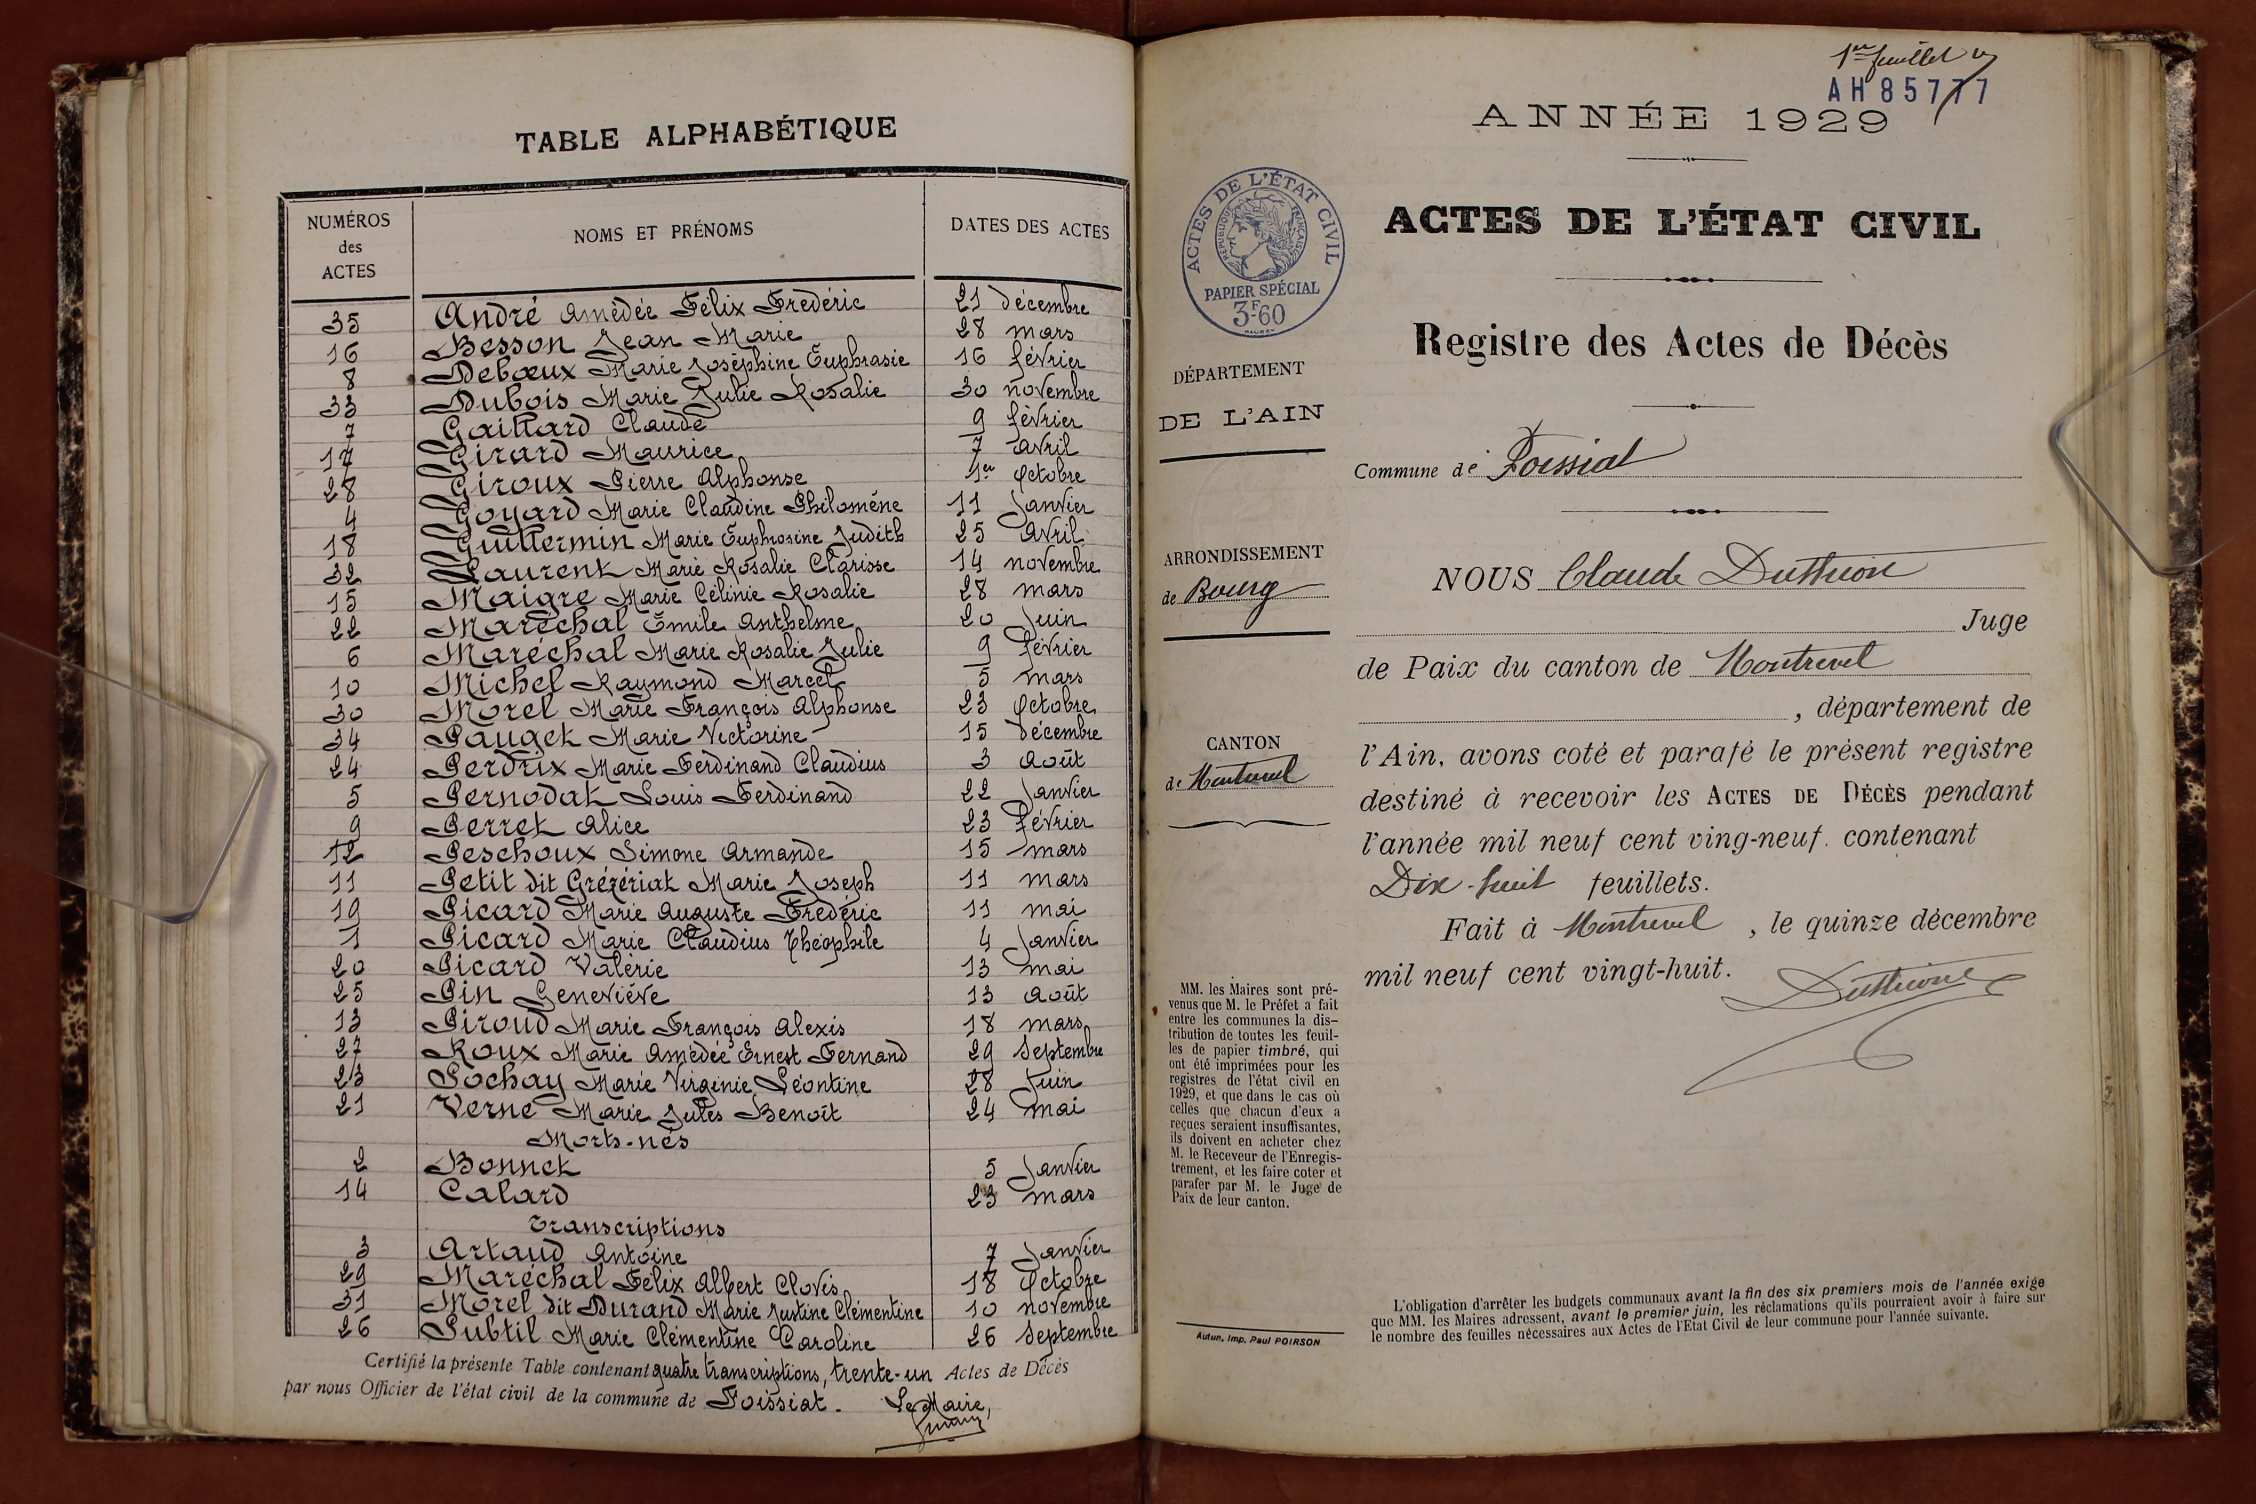 TABLE ALPHABÉTIQUE
NUMÉROS des ACTES NOMS ET PRÉNOMS DATES DES ACTES
35 André Amédée Félix Frédéric 21 décembre
16 Besson Jean Marie 28 mars
8 Debœux Marie Joséphine Euphrasie 16 février
33 Dubois Marie Julie Rosalie 30 novembre
7 Gaillard Claude 9 février
17 Girard Maurice 7 avril
28 Giroux Pierre Alphonse 1er octobre
4 Goyard Marie Claudine Philomène 11 janvier
18 Guillermin Marie Euphrosine Judith 25 avril
32 Laurent Marie Rosalie Clarisse 14 novembre
15 Maigre Marie Célinie Rosalie 28 mars
22 Maréchal Émile Anthelme 20 juin
6 Maréchal Marie Rosalie Julie 9 février
10 Michel Raymond Marcel 5 mars
30 Morel Marie François Alphonse 23 octobre
34 Pauget Marie Victorine 15 décembre
24 Perdrix Marie Ferdinand Claudius 3 août
5 Pernodat Louis Ferdinand 22 janvier
9 Perret Alice 23 février
12 Peschoux Simone Armande 15 mars
11 Petit dit Grézériat Marie Joseph 11 mars
19 Picard Marie Auguste Frédéric 11 mai
1 Picard Marie Claudius Théophile 4 janvier
20 Picard Valérie 13 mai
25 Pin Geneviève 13 août
13 Piroud Marie François Alexis 18 mars
27 Roux Marie Amédée Ernest Fernand 29 septembre
23 Sochay Marie Virginie Léontine 28 juin
21 Verne Marie Jules Benoît 24 mai
Morts-nés
2 Bonnet 5 janvier
14 Calard 23 mars
Transcriptions
3 Artaud Antoine 7 janvier
29 Maréchal Félix Albert Clovis 18 octobre
31 Morel dit Durand Marie Justine Clémentine 10 novembre
26 Subtil Marie Clémentine Caroline 26 septembre
Certifié la présente Table contenant quatre transcriptions, trente-un Actes de Décès
par nous Officier de l'état civil de la commune de Foissiat.
Le Maire,
1er feuillet
AH85777
ANNÉE 1929
ACTES DE L'ÉTAT CIVIL
RÉPUBLIQUE FRANÇAISE
PAPIER SPÉCIAL
3F60
ACTES DE L'ÉTAT CIVIL
Registre des Actes de Décès
DÉPARTEMENT
DE L'AIN
Commune de Foissiat
ARRONDISSEMENT
de Bourg
CANTON
de Montrevel
NOUS Claude Duthion
Juge
de Paix du canton de Montrevel
, département de
l'Ain, avons coté et parafé le présent registre
destiné à recevoir les ACTES DE DÉCÈS pendant
l'année mil neuf cent ving-neuf. contenant
Dix-huit feuillets.
Fait à Montrevel , le quinze décembre
mil neuf cent vingt-huit.
Duthion
MM. les Maires sont pré-
venus que M. le Préfet a fait
entre les communes la dis-
tribution de toutes les feuil-
les de papier timbré, qui
ont été imprimées pour les
registres de l'état civil en
1929, et que dans le cas où
celles que chacun d'eux a
reçues seraient insuffisantes,
ils doivent en acheter chez
M. le Receveur de l'Enregis-
trement, et les faire coter et
parafer par M. le Juge de
Paix de leur canton.
Autun, Imp. Paul POIRSON
L'obligation d'arrêter les budgets communaux avant la fin des six premiers mois de l'année exige
que MM. les Maires adressent, avant le premier juin, les réclamations qu'ils pourraient avoir à faire sur
le nombre des feuilles nécessaires aux Actes de l'État Civil de leur commune pour l'année suivante.